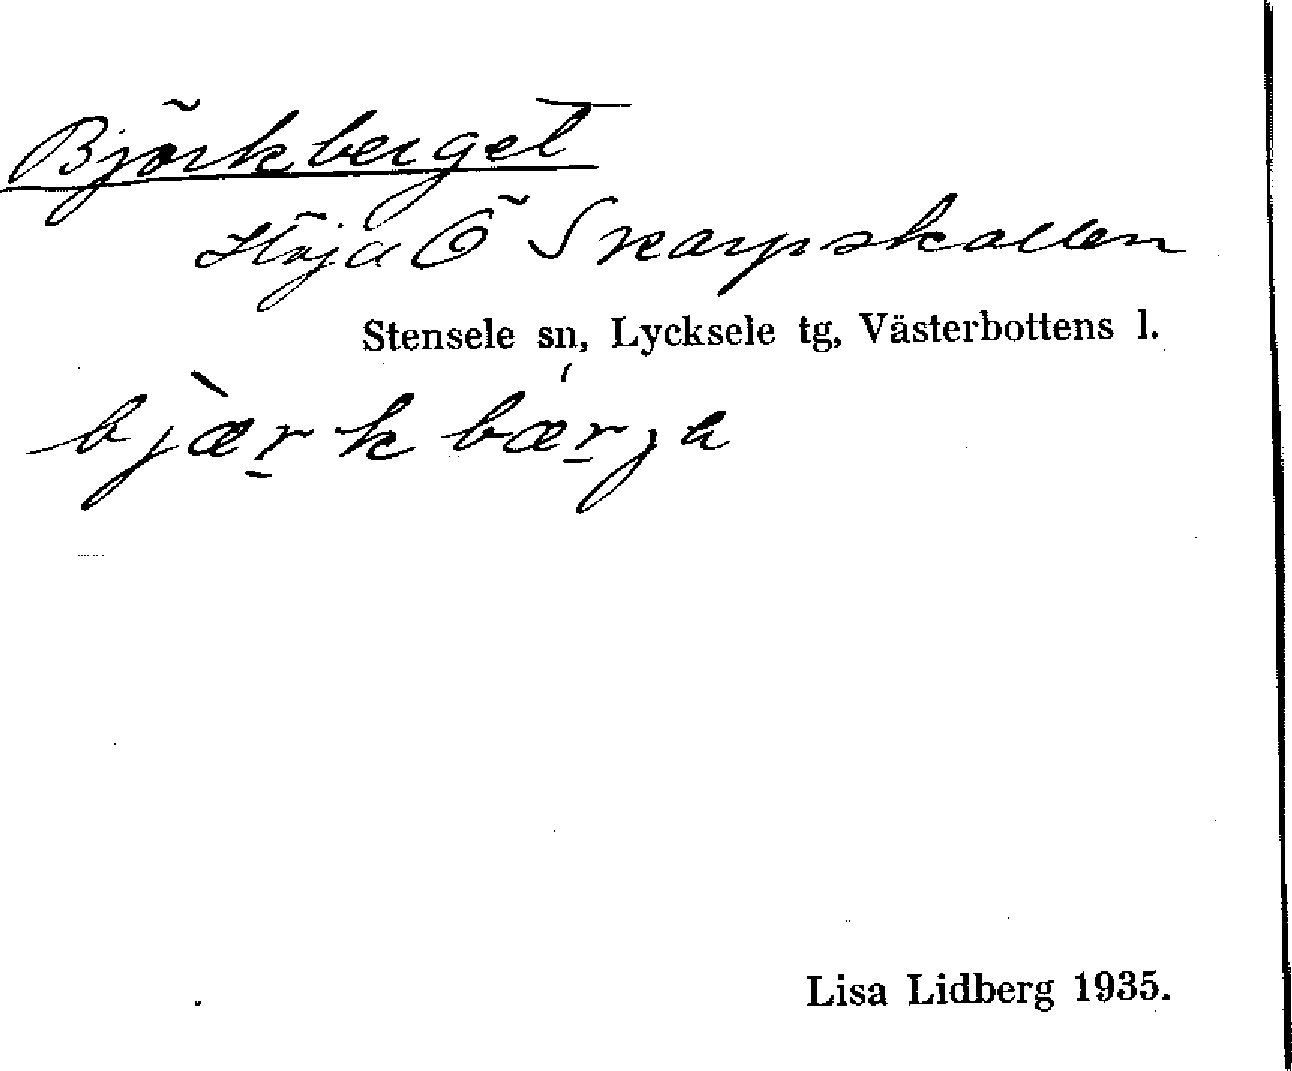 Björkberget
Höjd Ö Skarpskallen
Stensele sn, Lycksele tg, Västerbottens l.
bjæ̀rk bærja
Lisa Lidberg 1935.